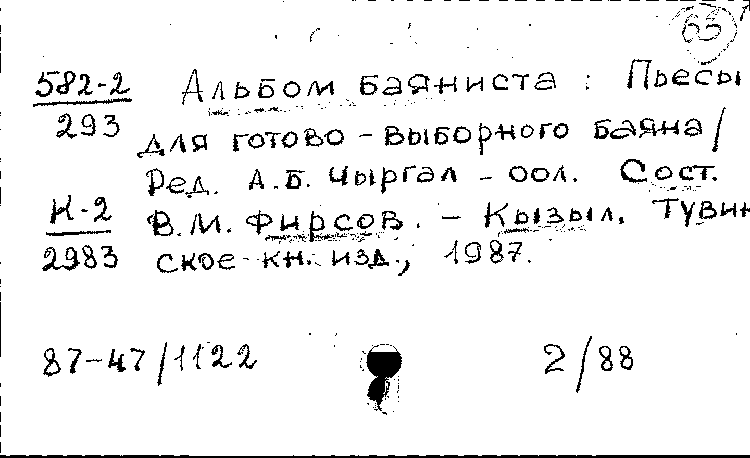 63
582-2 Альбом баяниста : Пьесы
293 для готово - выборного баяна /
Ред. А.Б. Чыргал - оол. Сост.
К-2 В.М. Фирсов. - Кызыл, Тувин
2983 ское кн. изд., 1987.
87-47/1122 2/88